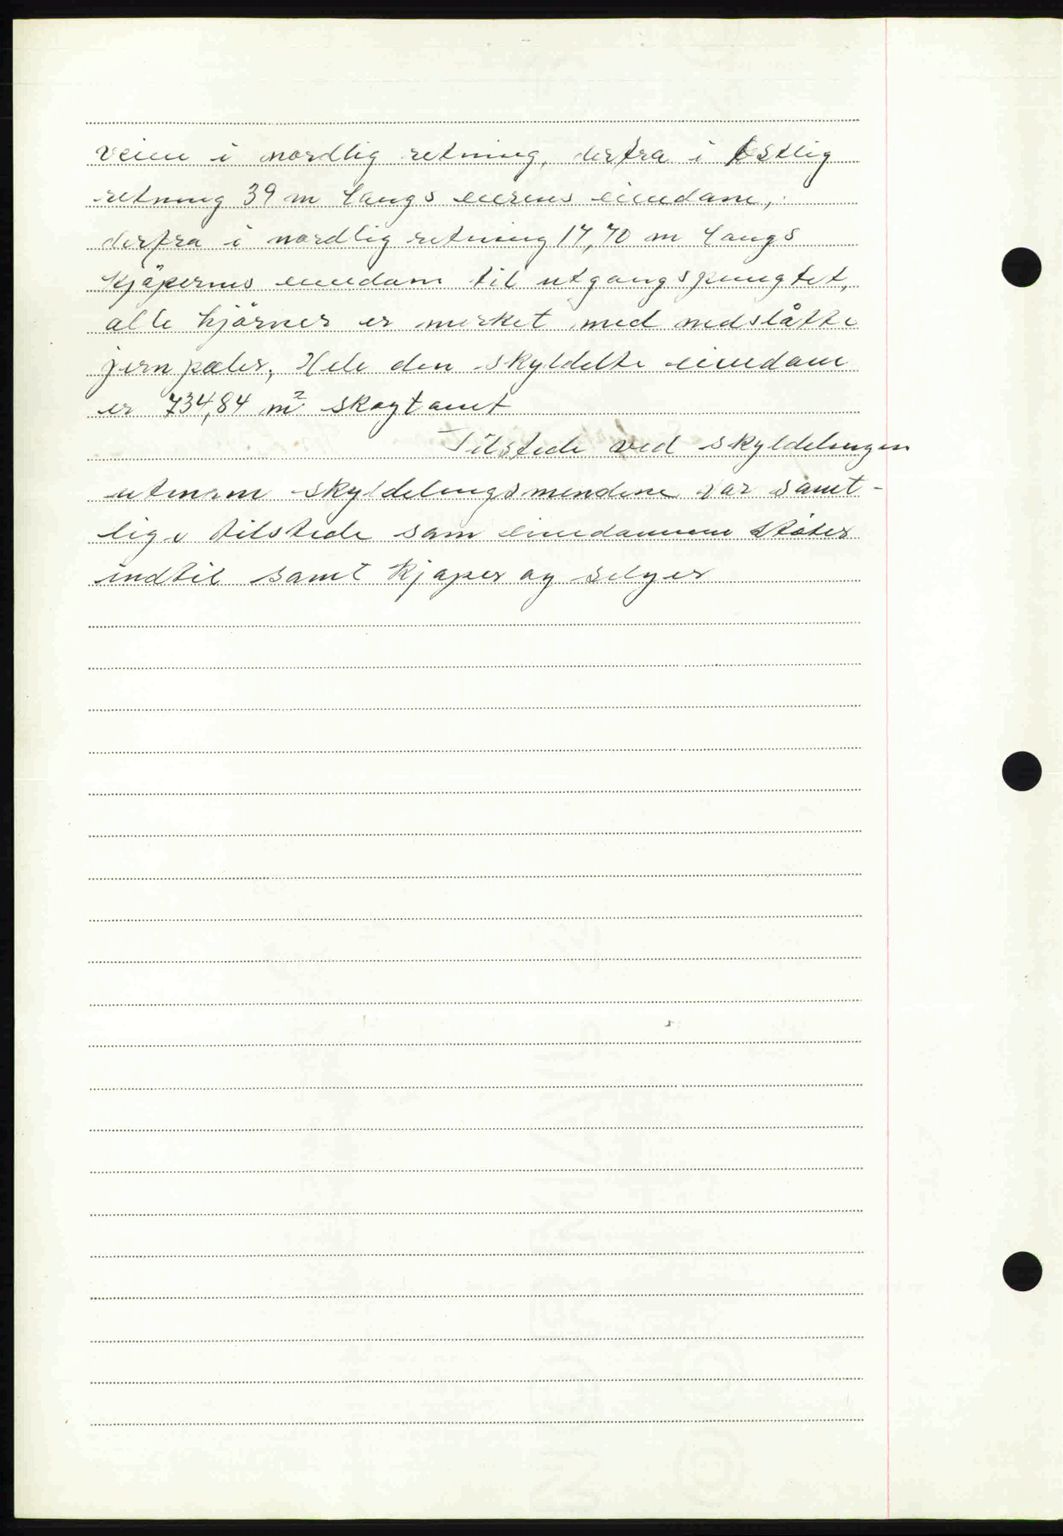 veien i nordlig retning, derfra i østlig
retning 39 m langs eierens eiendom,
derfra i nordlig retning 17,70 m langs
kjøperens eiendom til utgangspungtet,
alle hjørner er merket med nedslåtte
jernpæler, Hele den skyldelte eiendom
er 734,84 m² skogtomt
Tilstede ved skyldelingen
utenom skyldelingsmendene var samt-
lige tilstede som eiendommene støter
indtil samt kjøper og selger